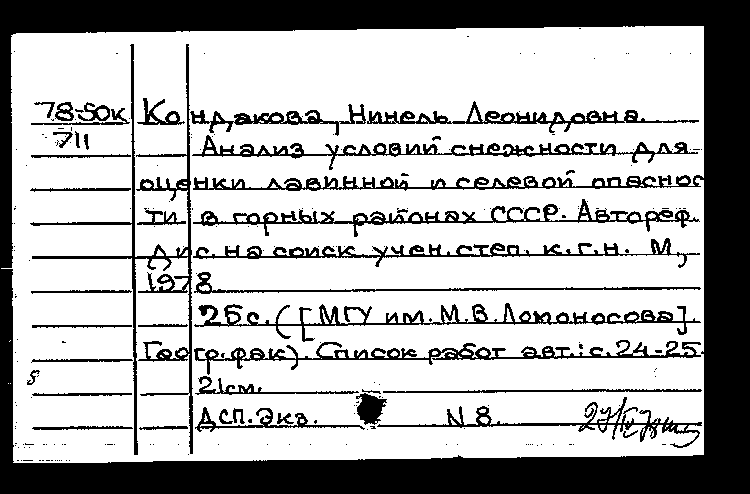 78-50к Кондакова, Нинель Леонидовна.
711 Анализ условий снежности для
оценки лавинной и селевой опаснос
ти в горных районах СССР. Автореф.
дис. на соиск. учен. степ. к.г.н. М,
1978.
25с. ([МГУ им. М.В. Ломоносова].
Геогр. фак). Список работ авт.: с. 24-25.
8
21см.
ДСП. Экз. N 8.